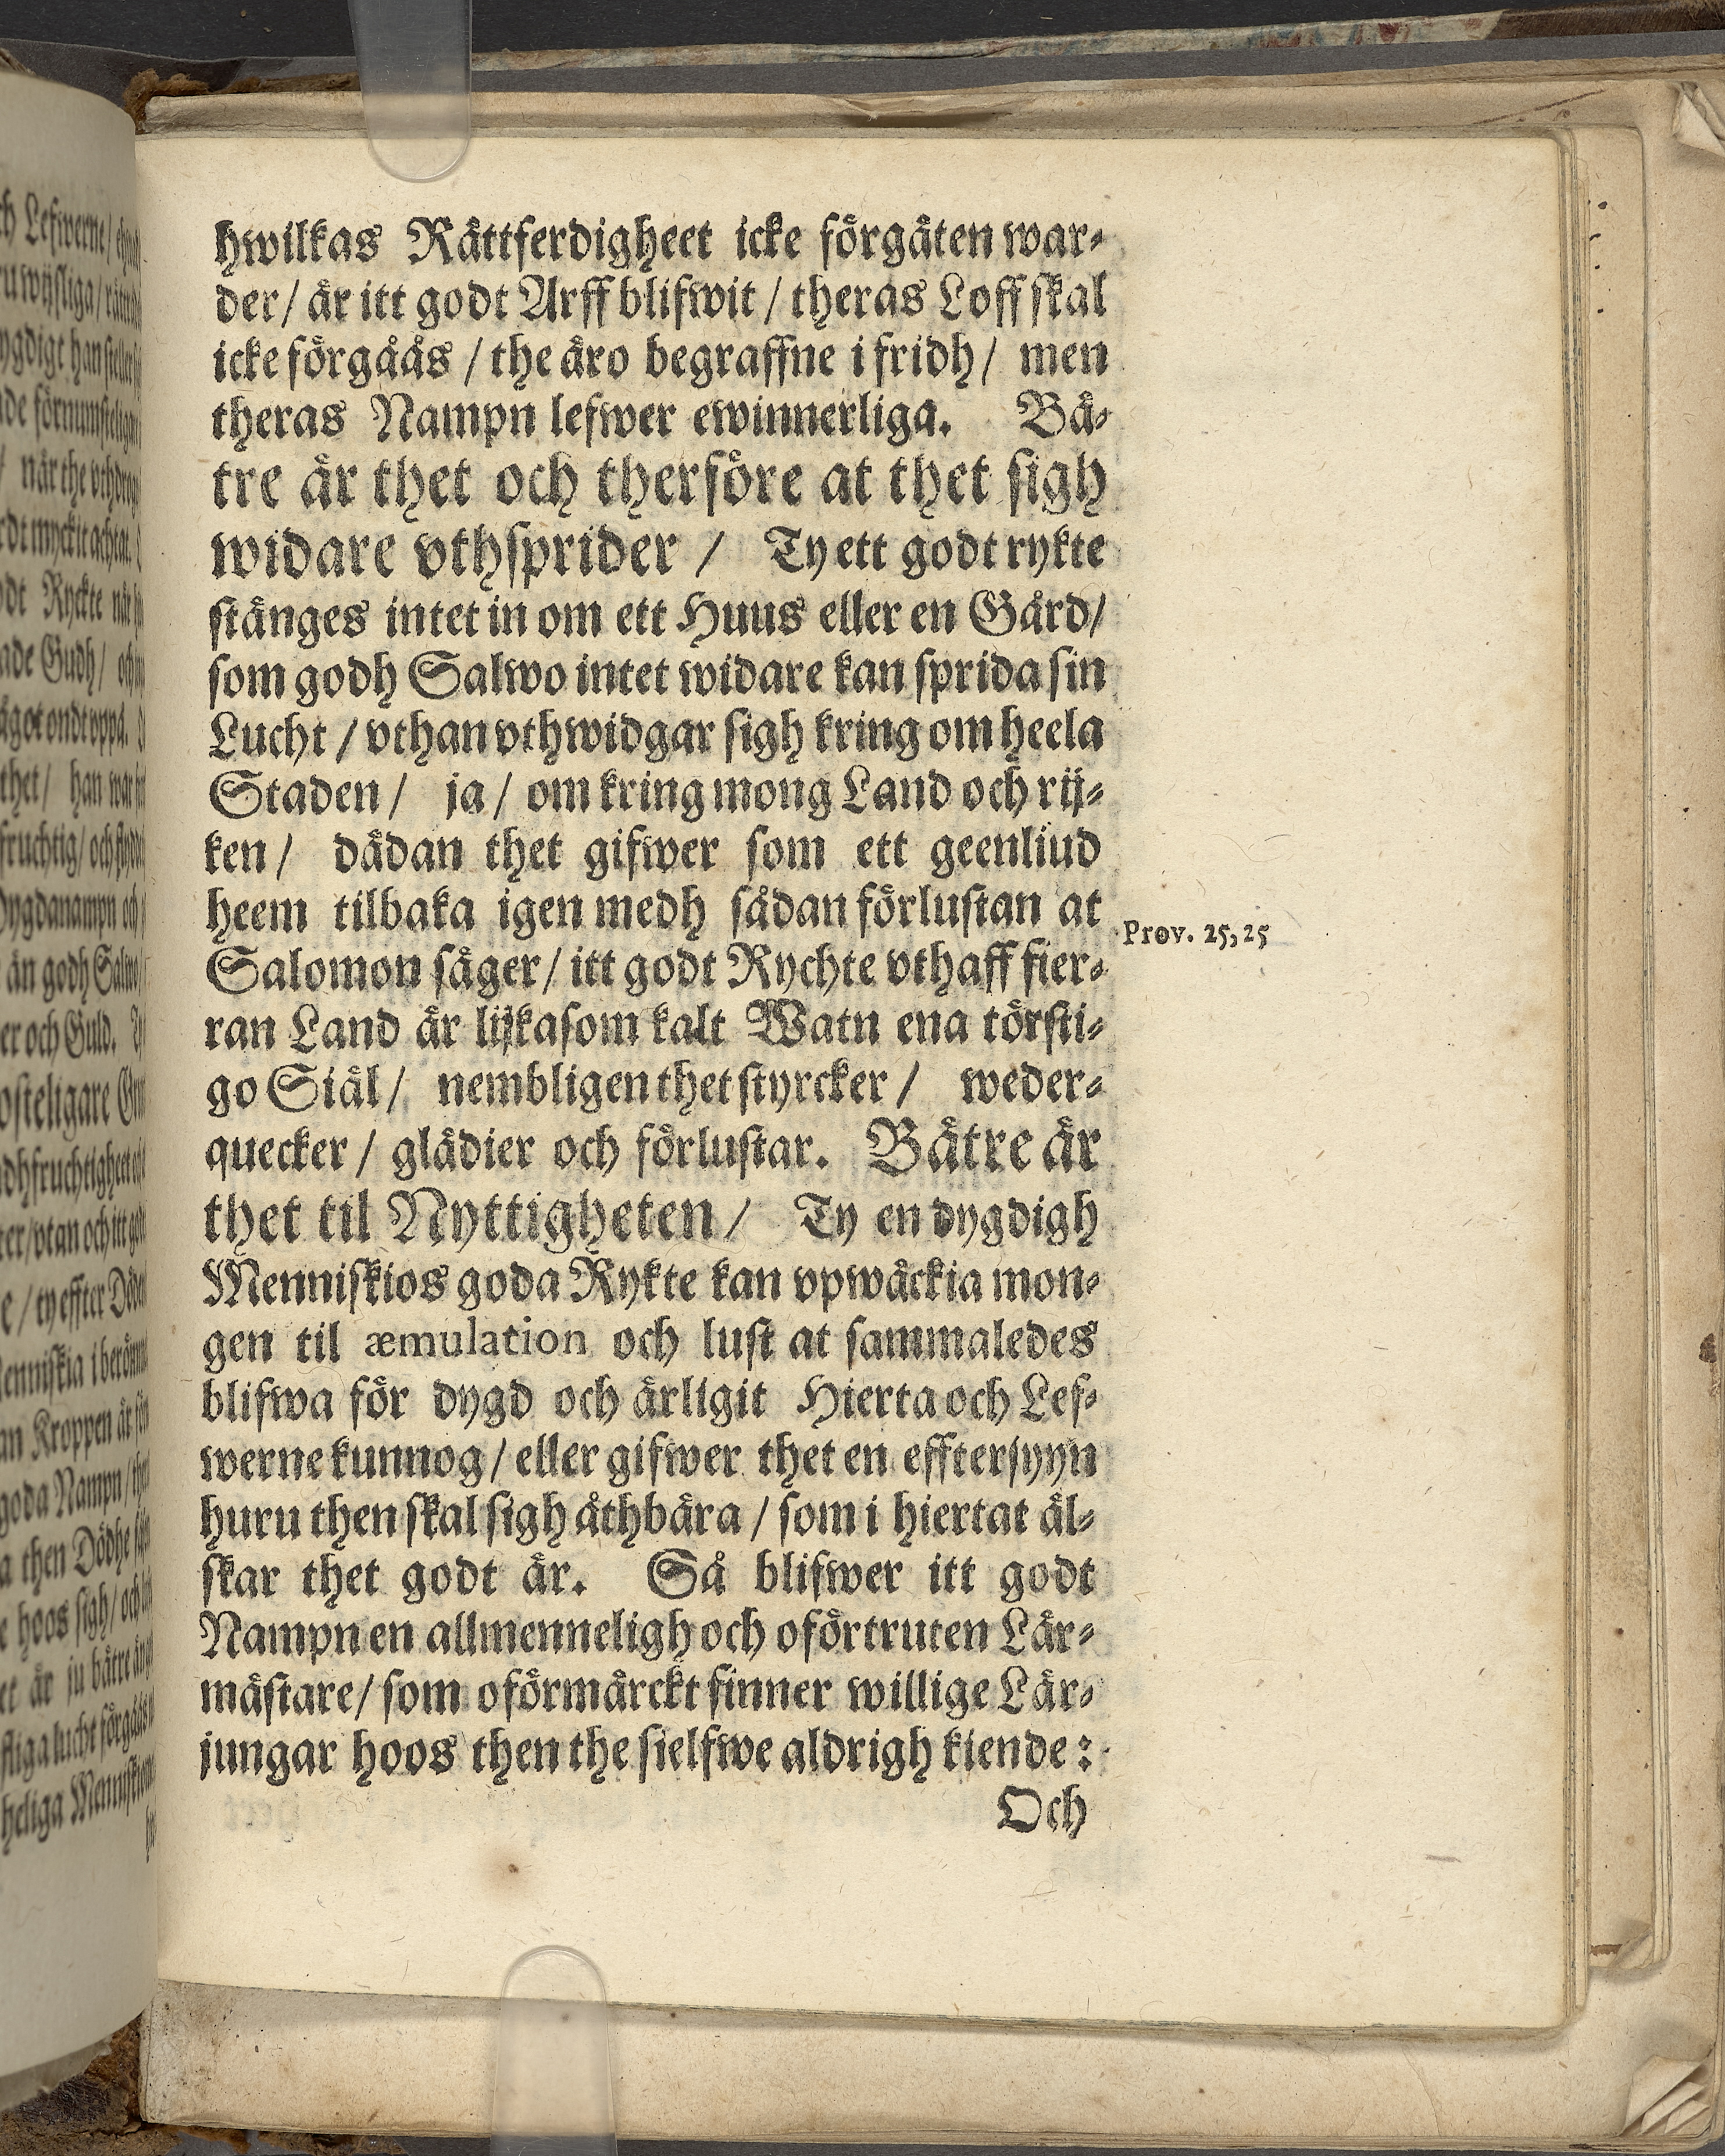 hwilkas Rättferdigheet icke förgäten war-
der/ är itt godt Arff blifwit / theras Loff skal
icke förgåås / the äro begraffne i fridh/ men
theras Nampn lefwer ewinnerliga. Bä-
tre är thet och therföre at thet sigh
widare vthsprider / Ty ett godt rykte
stänges intet in om ett Huus eller en Gård/
som godh Salwo intet widare kan sprida sin
Lucht / vthan vthwidgar sigh kring om heela
Staden/ ja / om kring mong Land och rij-
ken / dädan thet gifwer som ett geenliud
heem tilbaka igen medh sådan förlustan at
Prov. 25, 25
Salomon säger/ itt godt Rychte vthaff fier-
ran Land är lijkasom kalt Watn ena törsti-
go Siäl/ nembligen thet styrcker / weder-
quecker / glädier och förlustar. Bätre är
thet til Nyttigheten / Ty en dygdigh
Menniskios goda Rykte kan vpwäckia mon-
gen til æmulation och lust at sammaledes
blifwa för dygd och ärligit Hierta och Lef-
werne kunnog / eller gifwer thet en efftersyyn
huru then skal sigh åthbära / som i hiertat äl-
skar thet godt är. Så blifwer itt godt
Nampn en allmenneligh och oförtruten Lär-
mästare/ som oförmärckt finner willige Lär-
jungar hoos then the sielfwe aldrigh kiende :
Och